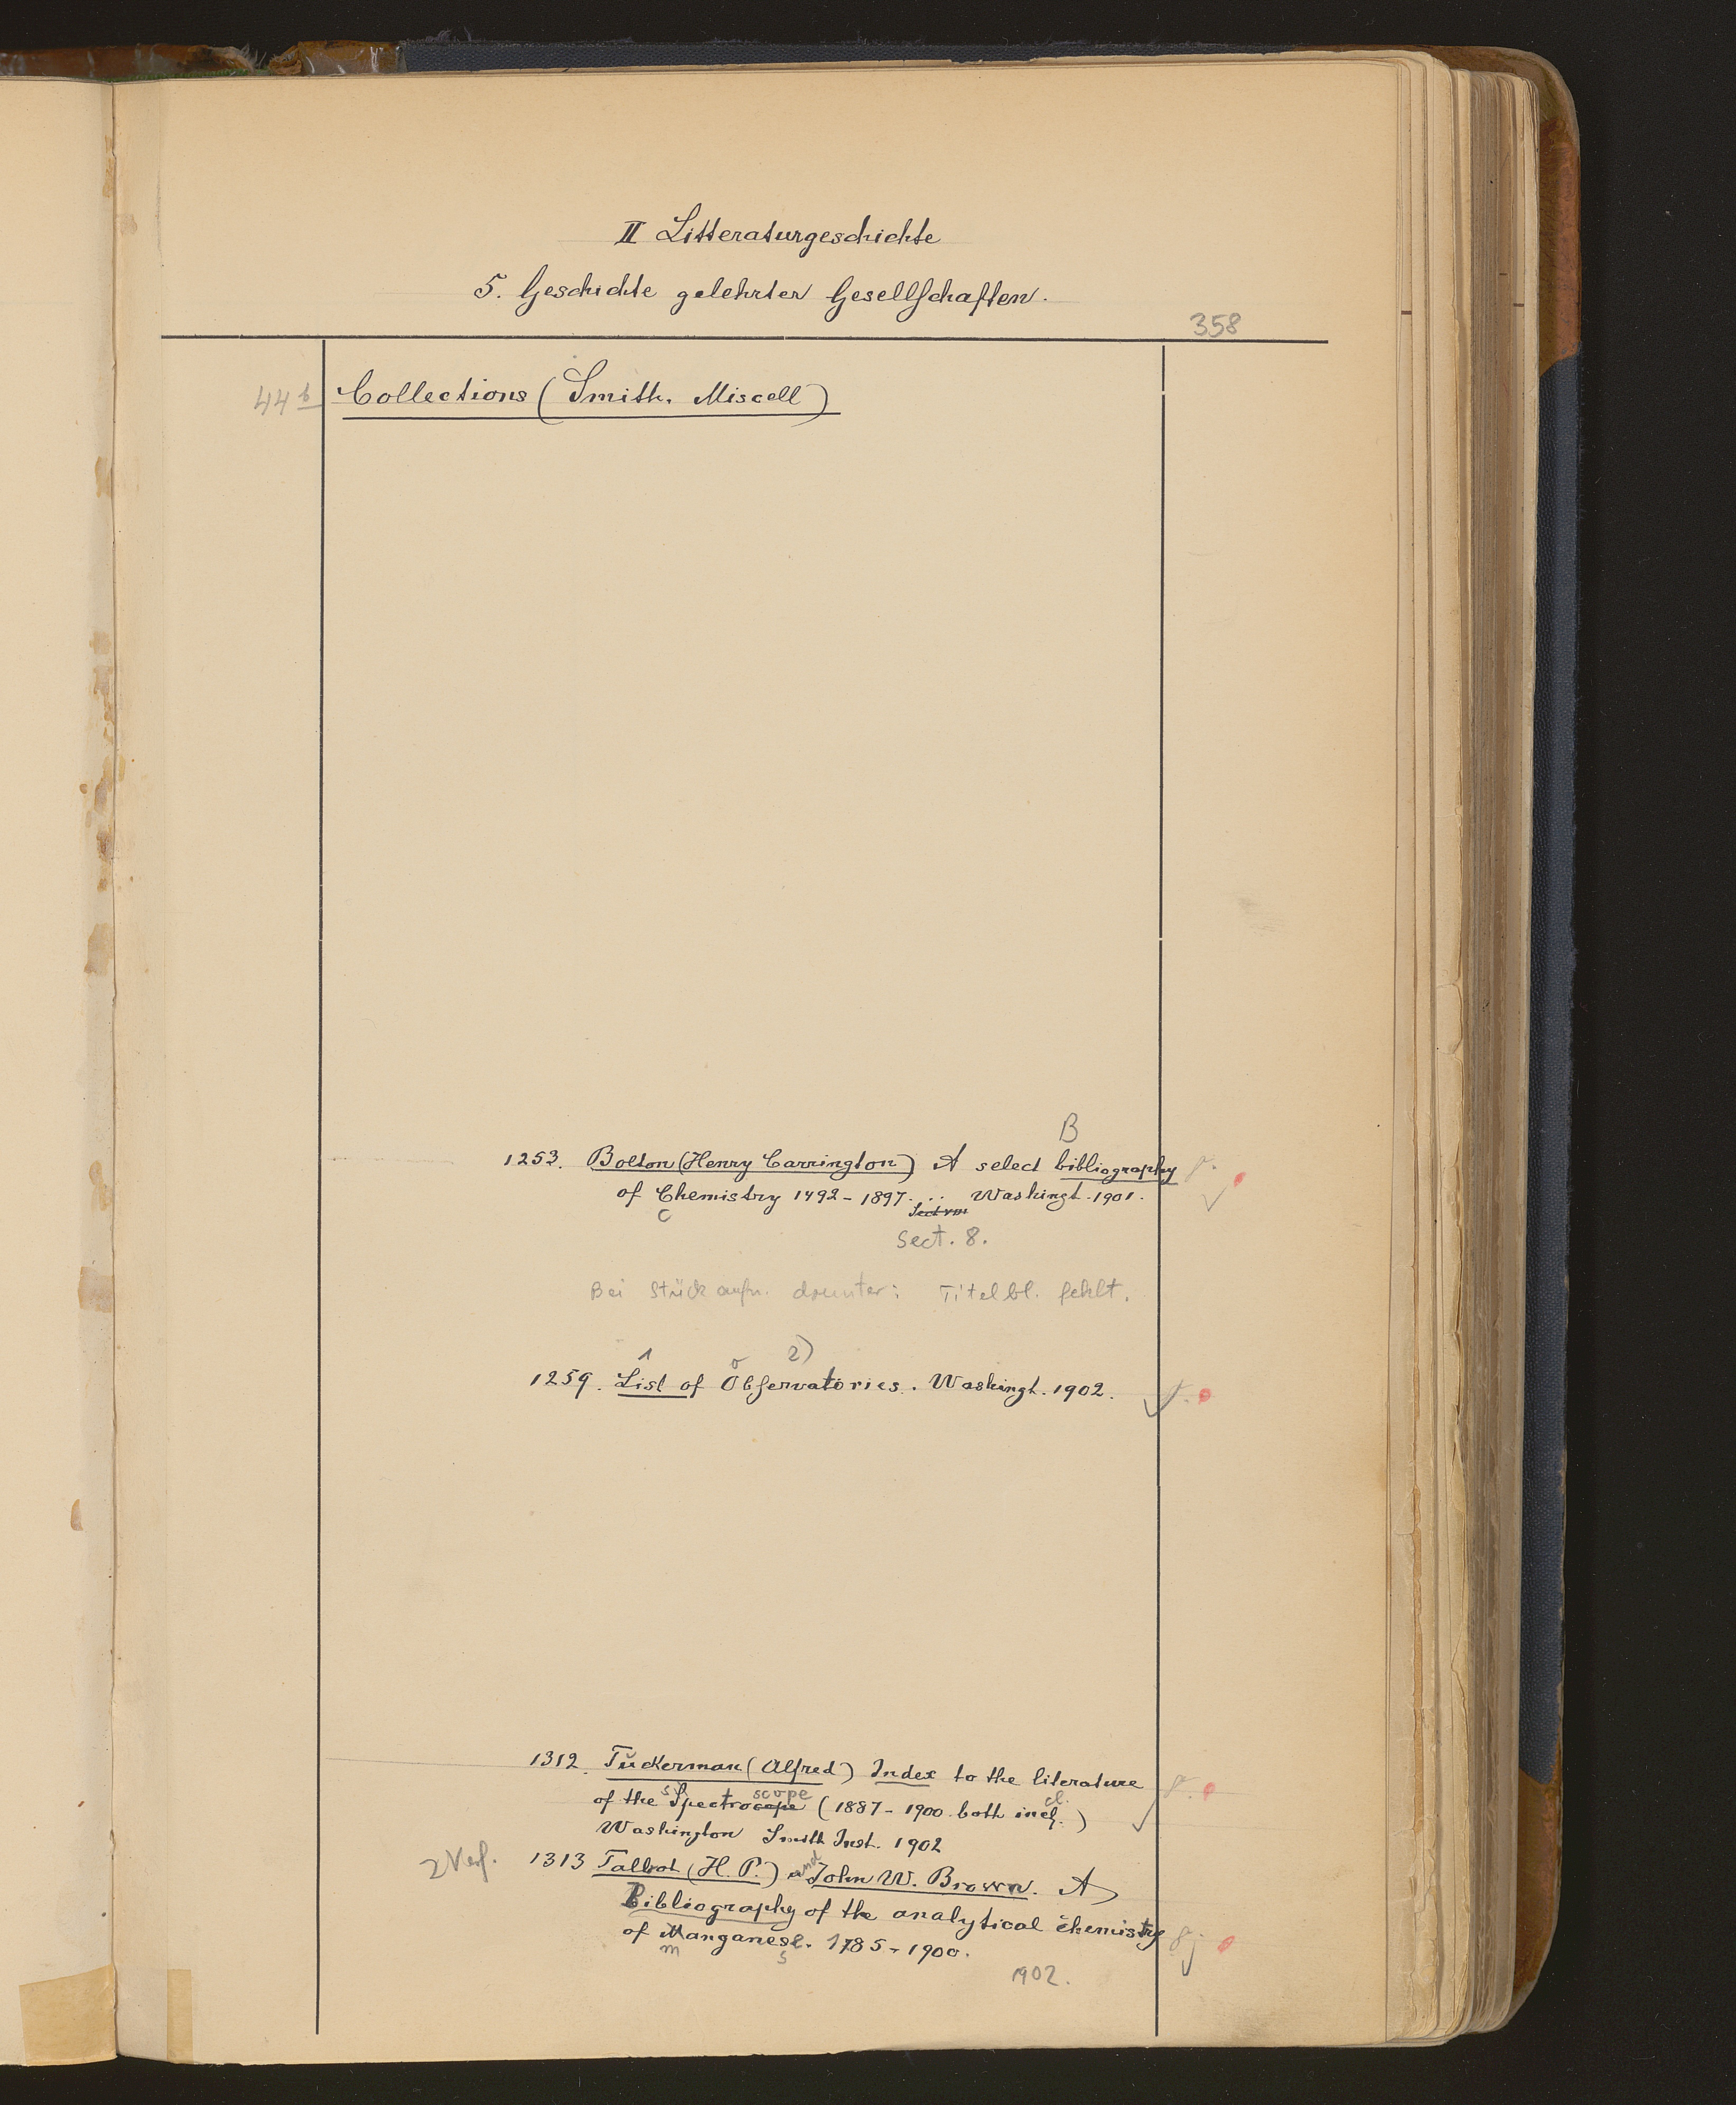 II Litteraturgeschichte
5. Geschichte gelehrter Gesellschaften.
358
44 b Collections (Smith. Miscell)
B
1253. Bolton (Henry Carrington) A select bibliography
of Chemistry 1492 - 1897. .. Washingt. 1901.
c Sect VIII
Sect. 8.
Bei Stückaufn. drunter: Titelbl. fehlt.
1 o 2)
1259. List of Observatories. Washingt. 1902.
1312. Tuckerman (Alfred) Index to the literature
s scope cl.
of the Spectrocope (1887 - 1900 both incl.)
Washington Smith Inst. 1902
2 Verf. 1313 Talbot (H. P.) and John W. Brown. A
Bibliography of the analytical chemistry
of Manganese. 1785 - 1900.
m s
1902.